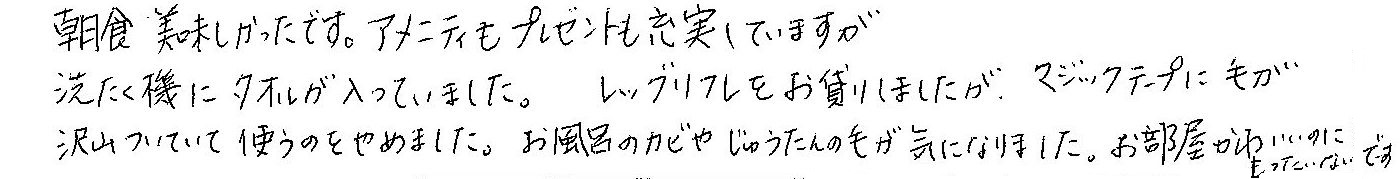 朝食美味しかったです。アメニティもプレゼントも充実していますが
洗たく機にタオルが入っていました。 レッグリフレをお借りしましたが、マジックテープに毛が
沢山ついていて使うのをやめました。お風呂のカビやじゅうたんの毛が気になりました。お部屋かわいいのにもったいないです